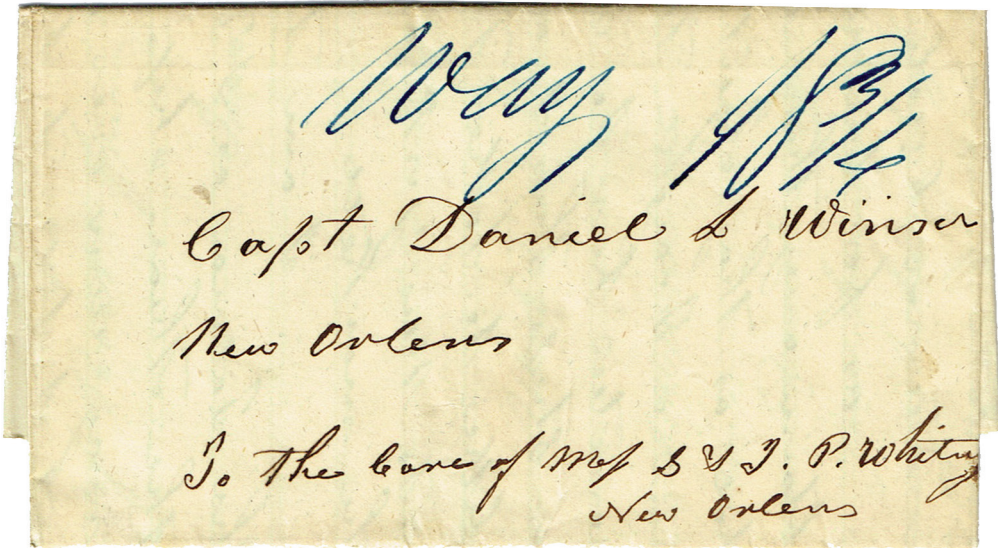 Way 18 3/4
Capt Daniel L Winsor
New Orlens
To the Care of Mess S & J. P. Whitny
New Orlens